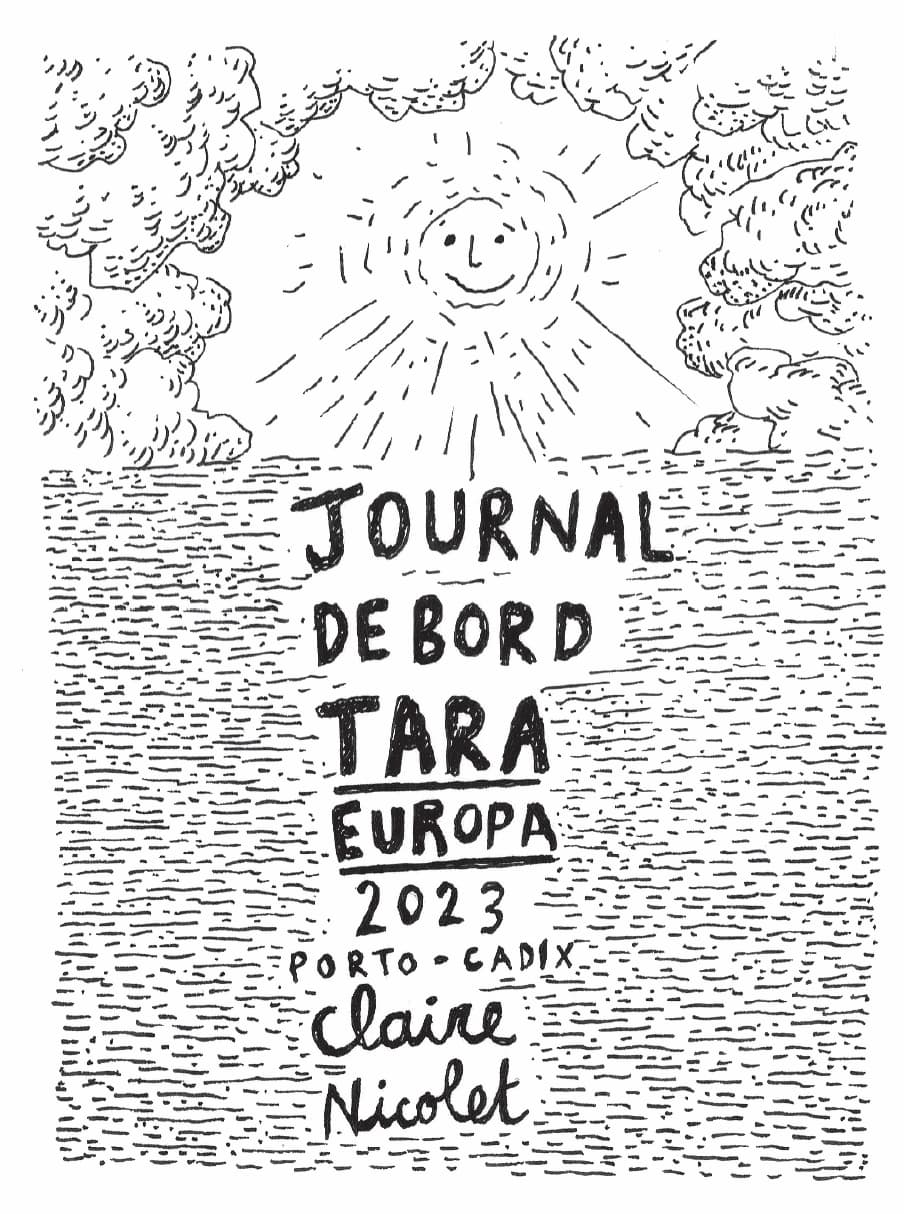 JOURNAL
DE BORD
TARA
EUROPA
2023
PORTO - CADIX
Claire
Nicolet